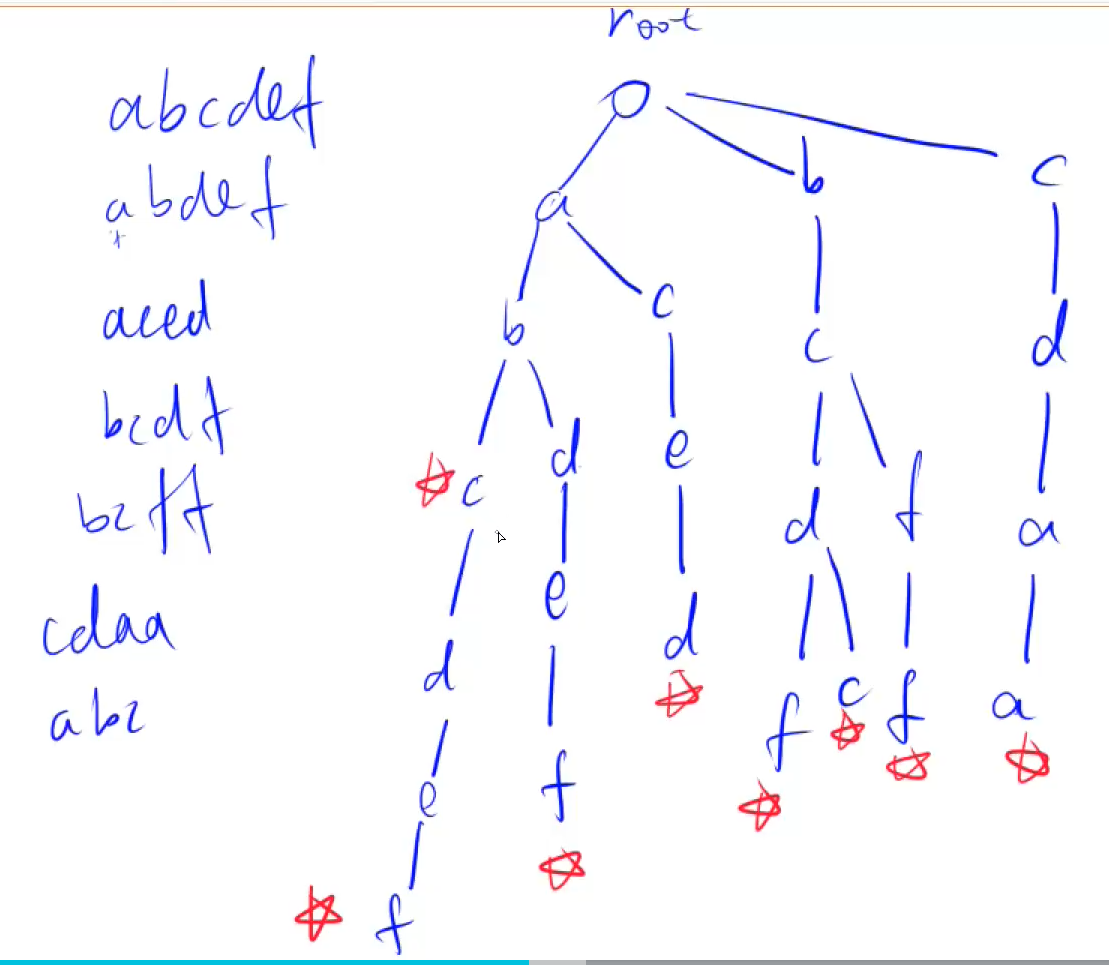 root
abcdef
abdef
aced
bcdf
bcff
cdaa
abc
b
c
a
c
b
c
d
d
c
e
d
f
a
e
d
d
c
f
a
f
f
e
f